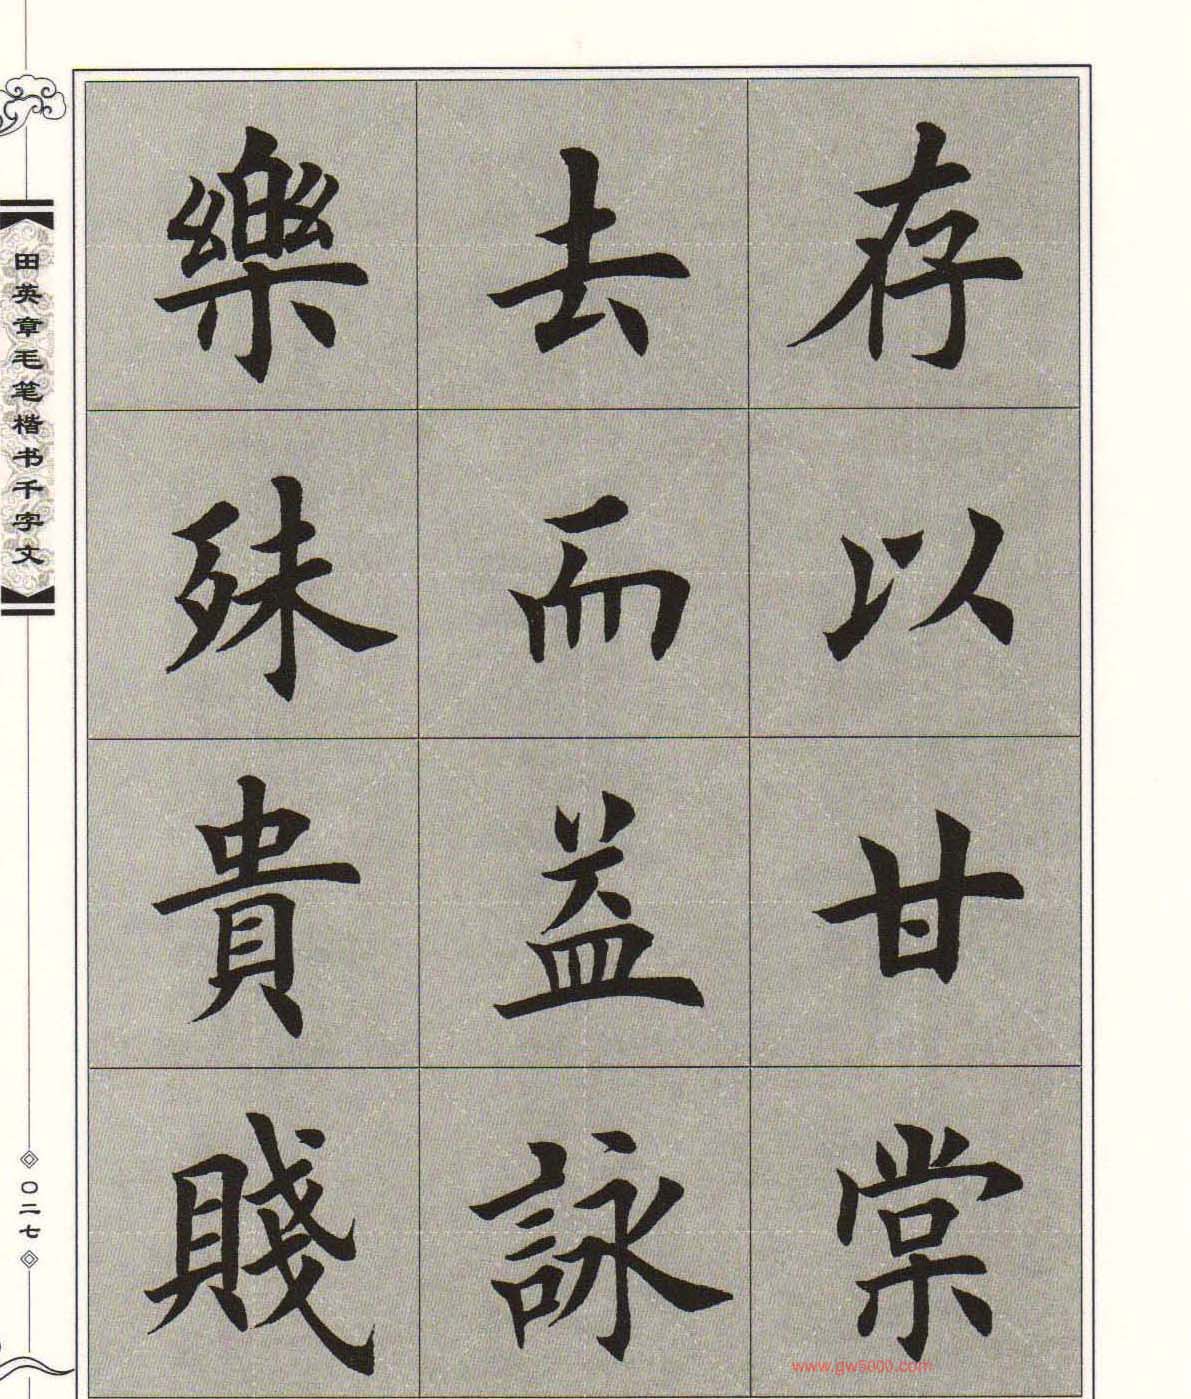 存以甘棠
去而益詠
樂殊貴賤
田英章毛笔楷书千字文
〇二七
www.gw5000.com